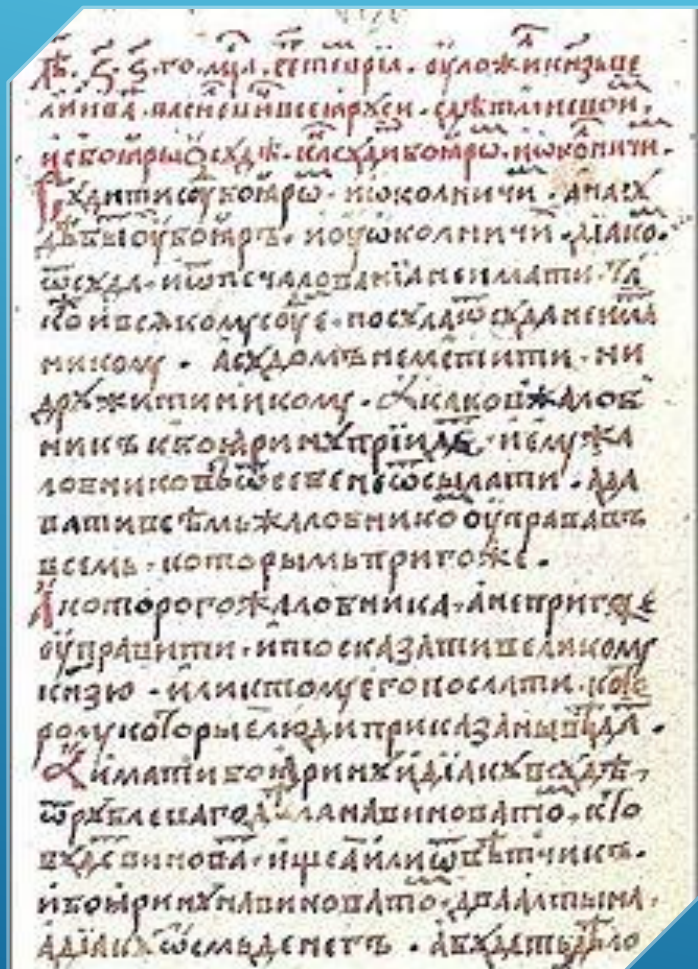 лѣ҇. ҂з҃. ѕ҃. го. мцⷭ҇а. септеврїа. оуложи кнѧзь ве
ликї ива васиⷧевиⷱ всеꙗ рꙋси. с дѣтми свои,
и с боꙗры ѡ сꙋдѣ. каⷦ сꙋди боꙗрѡ. и ѡколничи.
Сꙋдити сꙋ боꙗрѡ. и ѡколничи. а на сꙋ
дѣ быⷮ оу боꙗръ. и оу ѡколничиⷯ. дїако.
ѿ сꙋда. и ѿ печалованїа не имати. та
коⷤ и всякомꙋ сꙋⷣе. посꙋла ѿ сꙋда не има
никомꙋ. а сꙋдомъ не мстити. ни
дрꙋжити никомꙋ. А каков жалоб
никъ к боꙗринꙋ прїидеⷮ. и емꙋ жа
лобниковъ ѿ себе не ѿсылати. а да
вати всѣмъ жалобникоⷨ оуправа въ
всемь. которымъ пригоже.
А которого жалобника. а непригоже
оуправити. и то сказати великомꙋ
кнѧзю. или к томꙋ его послати. кото
ромꙋ которые люди приказаны вѣдаⷮ.
А имати боꙗринꙋ и дїакꙋ в сꙋдѣ,
ѿ рꙋблеваго дѣла на виноватоⷨ. кто
бꙋдеⷮ виноваⷮ. ищеа или ѿвѣтчикъ.
и боꙗринꙋ на виноватоⷨ. два алтына.
а дїакꙋ ѡсмь денегъ. а бꙋдеть дѣло